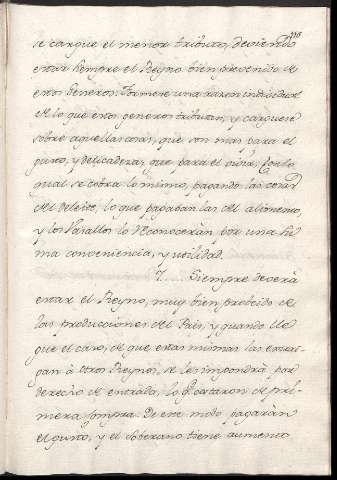 se cargue el menor tributo, deviendo
estar siempre el Reyno bien prevenido de
estos generos. Formese una razon individual
de lo que estos generos tributan, y carguese
sobre aquellas cosas, que son mas para el
gusto, y delicadeza, que para el vivir. Con lo
qual se cobra lo mismo, pagando las cosas
del deleite, lo que pagaban las del alimento,
y los Vasallos lo reconoceràn por una su
ma conveniencia, y utilidad.
7. Siempre deverà
estar el Reyno, muy bien probeido de
las producciones del Pais, y quando lle
gue el caso, de que estas mismas las estrai-
gan à otro Reyno, se les impondrà por
derecho de entrada, lo q. costaron de pri-
mera compra. De este modo pagaràn
el gusto, y el soberano tiene aumento